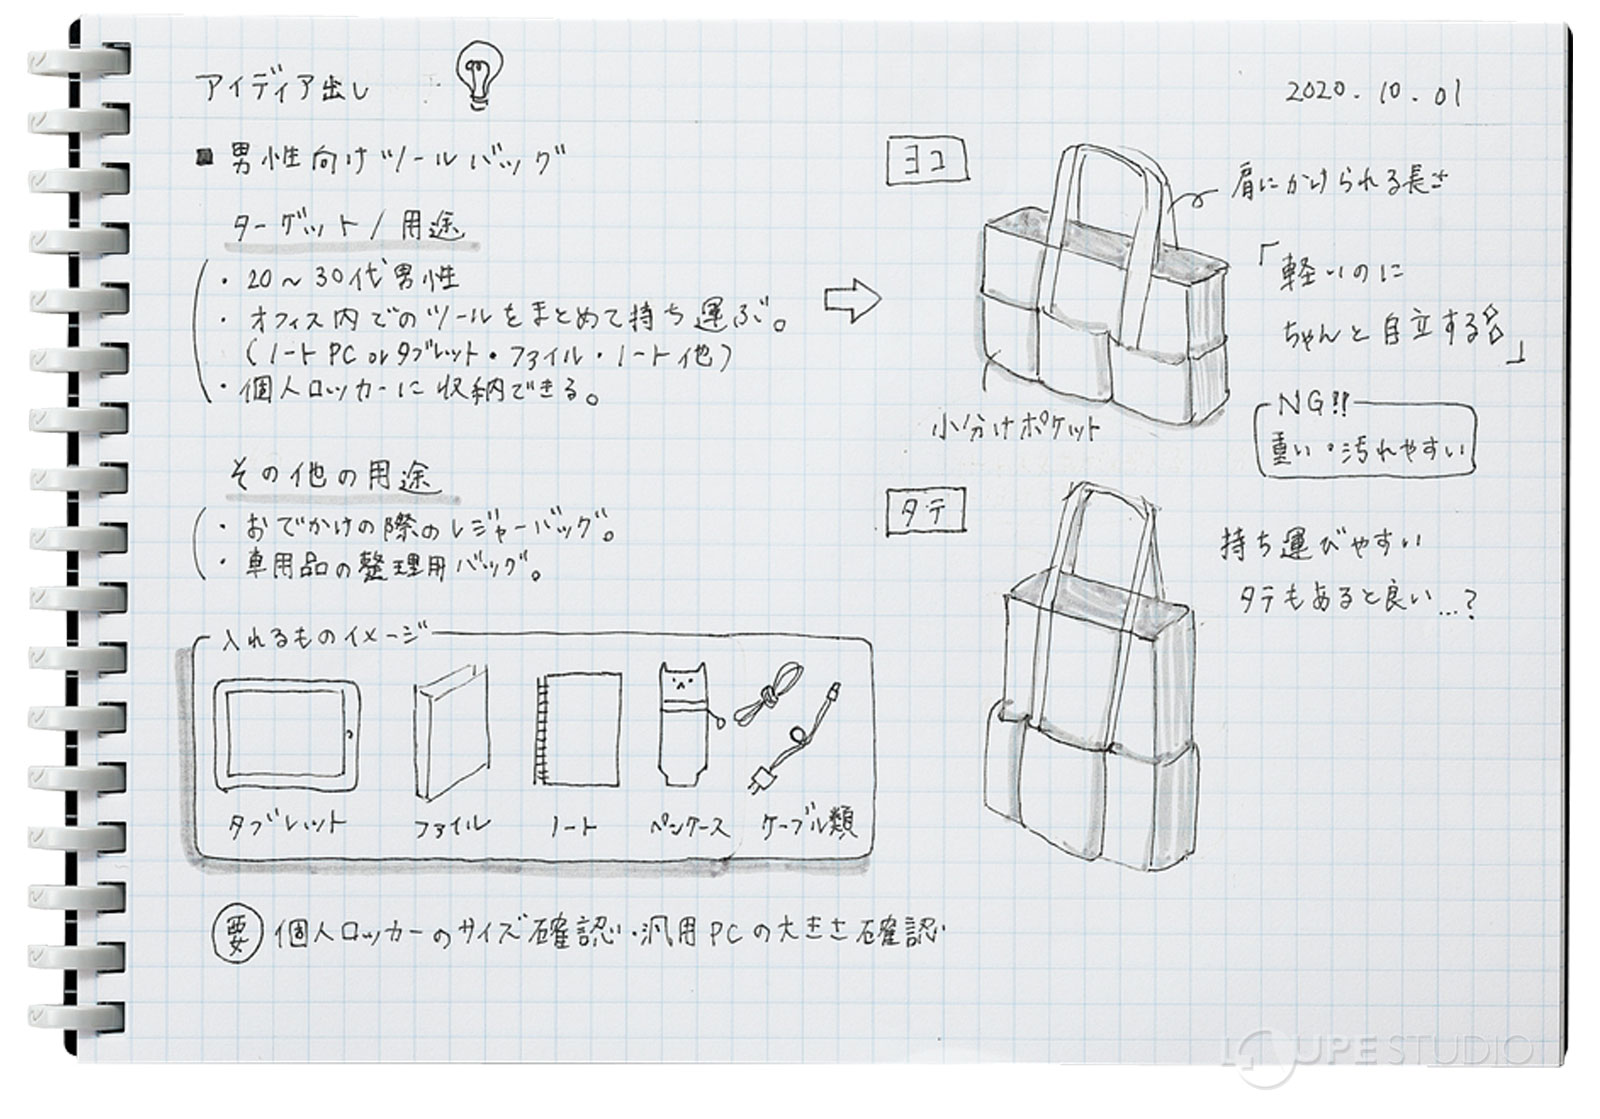 アイディア出し
2020.10.01
■男性向けツールバッグ
ターゲット/用途
・20～30代男性
・オフィス内でのツールをまとめて持ち運ぶ。
(ノートPC orタブレット・ファイル・ノート他)
・個人ロッカーに収納できる。
その他の用途
・おでかけの際のレジャーバッグ。
・車用品の整理用バッグ。
入れるものイメージ
タブレット
ファイル
ノート
ペンケース
ケーブル類
要 個人ロッカーのサイズ確認・汎用PCの大きさ確認
ヨコ
肩にかけられる長さ
「軽いのに
ちゃんと自立する」
小分けポケット
NG!!
重い・汚れやすい
タテ
持ち運びやすい
タテもあると良い…?
LOUPE STUDIO